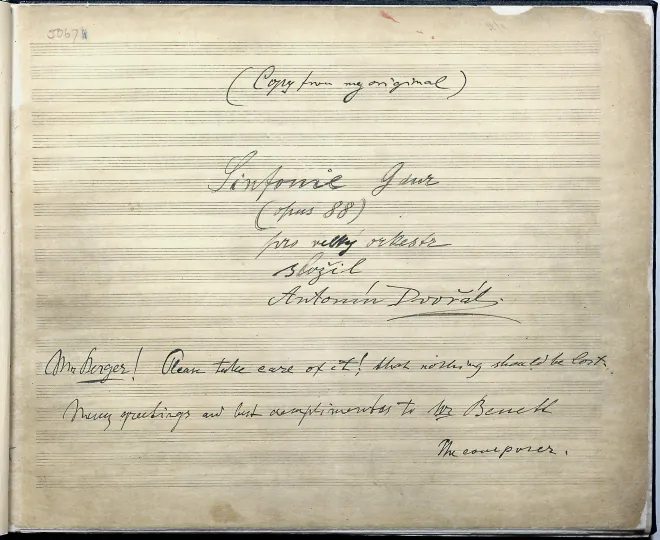 5067
(Copy from my original)
Sinfonie G dur
(opus 88)
pro velký orkestr
složil
Antonín Dvořák.
Mr Berger! Please take care of it! that nothing should be lost.
Many greetings and best complimentes to Mr Benett
The composer.